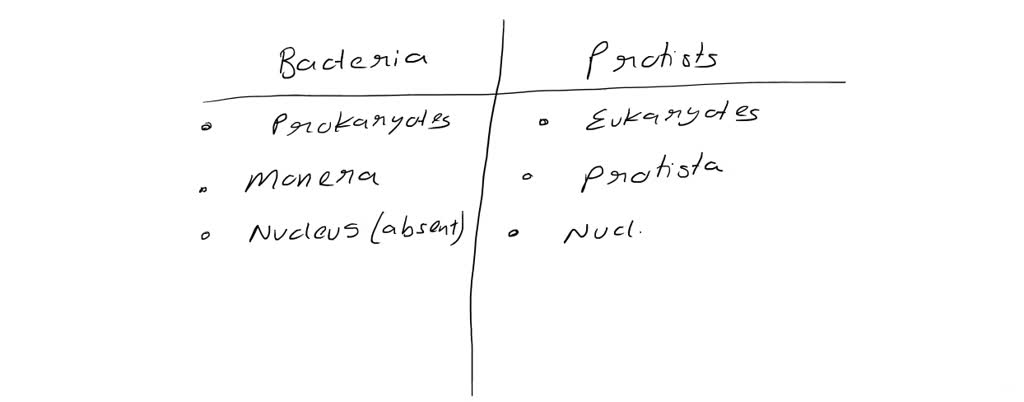 Bacteria | Protists
• Prokaryotes • Eukaryotes
• Monera • Protista
• Nucleus (absent) • Nucl.